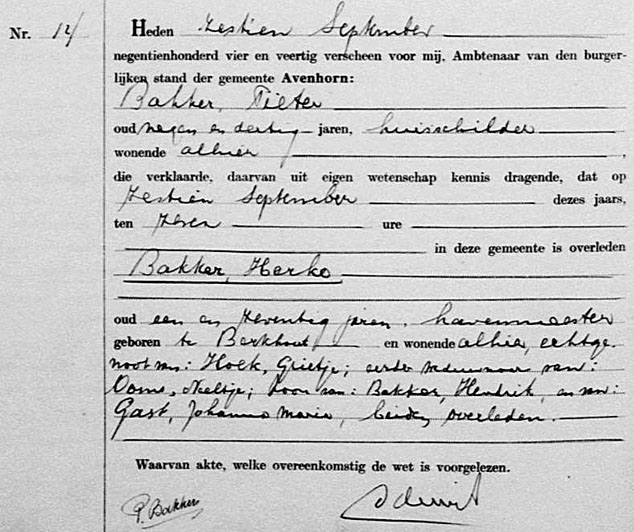 Nr. 14
Heden zestien September
negentienhonderd vier en veertig verscheen voor mij, Ambtenaar van den burger-
lijken stand der gemeente Avenhorn:
Bakker, Pieter
oud negen en dertig jaren, huisschilder
wonende alhier,
die verklaarde, daarvan uit eigen wetenschap kennis dragende, dat op
zestien September dezes jaars,
ten zeven ure
in deze gemeente is overleden
Bakker, Herko
oud een en zeventig jaren, havenmeester
geboren te Berkhout en wonende alhier, echtge-
noot van: Hoek, Grietje; eerder weduwnaar van:
Ooms, Neeltje; zoon van: Bakker, Hendrik, en van:
Gast, Johanna Maria, beiden overleden.
Waarvan akte, welke overeenkomstig de wet is voorgelezen.
P. Bakker